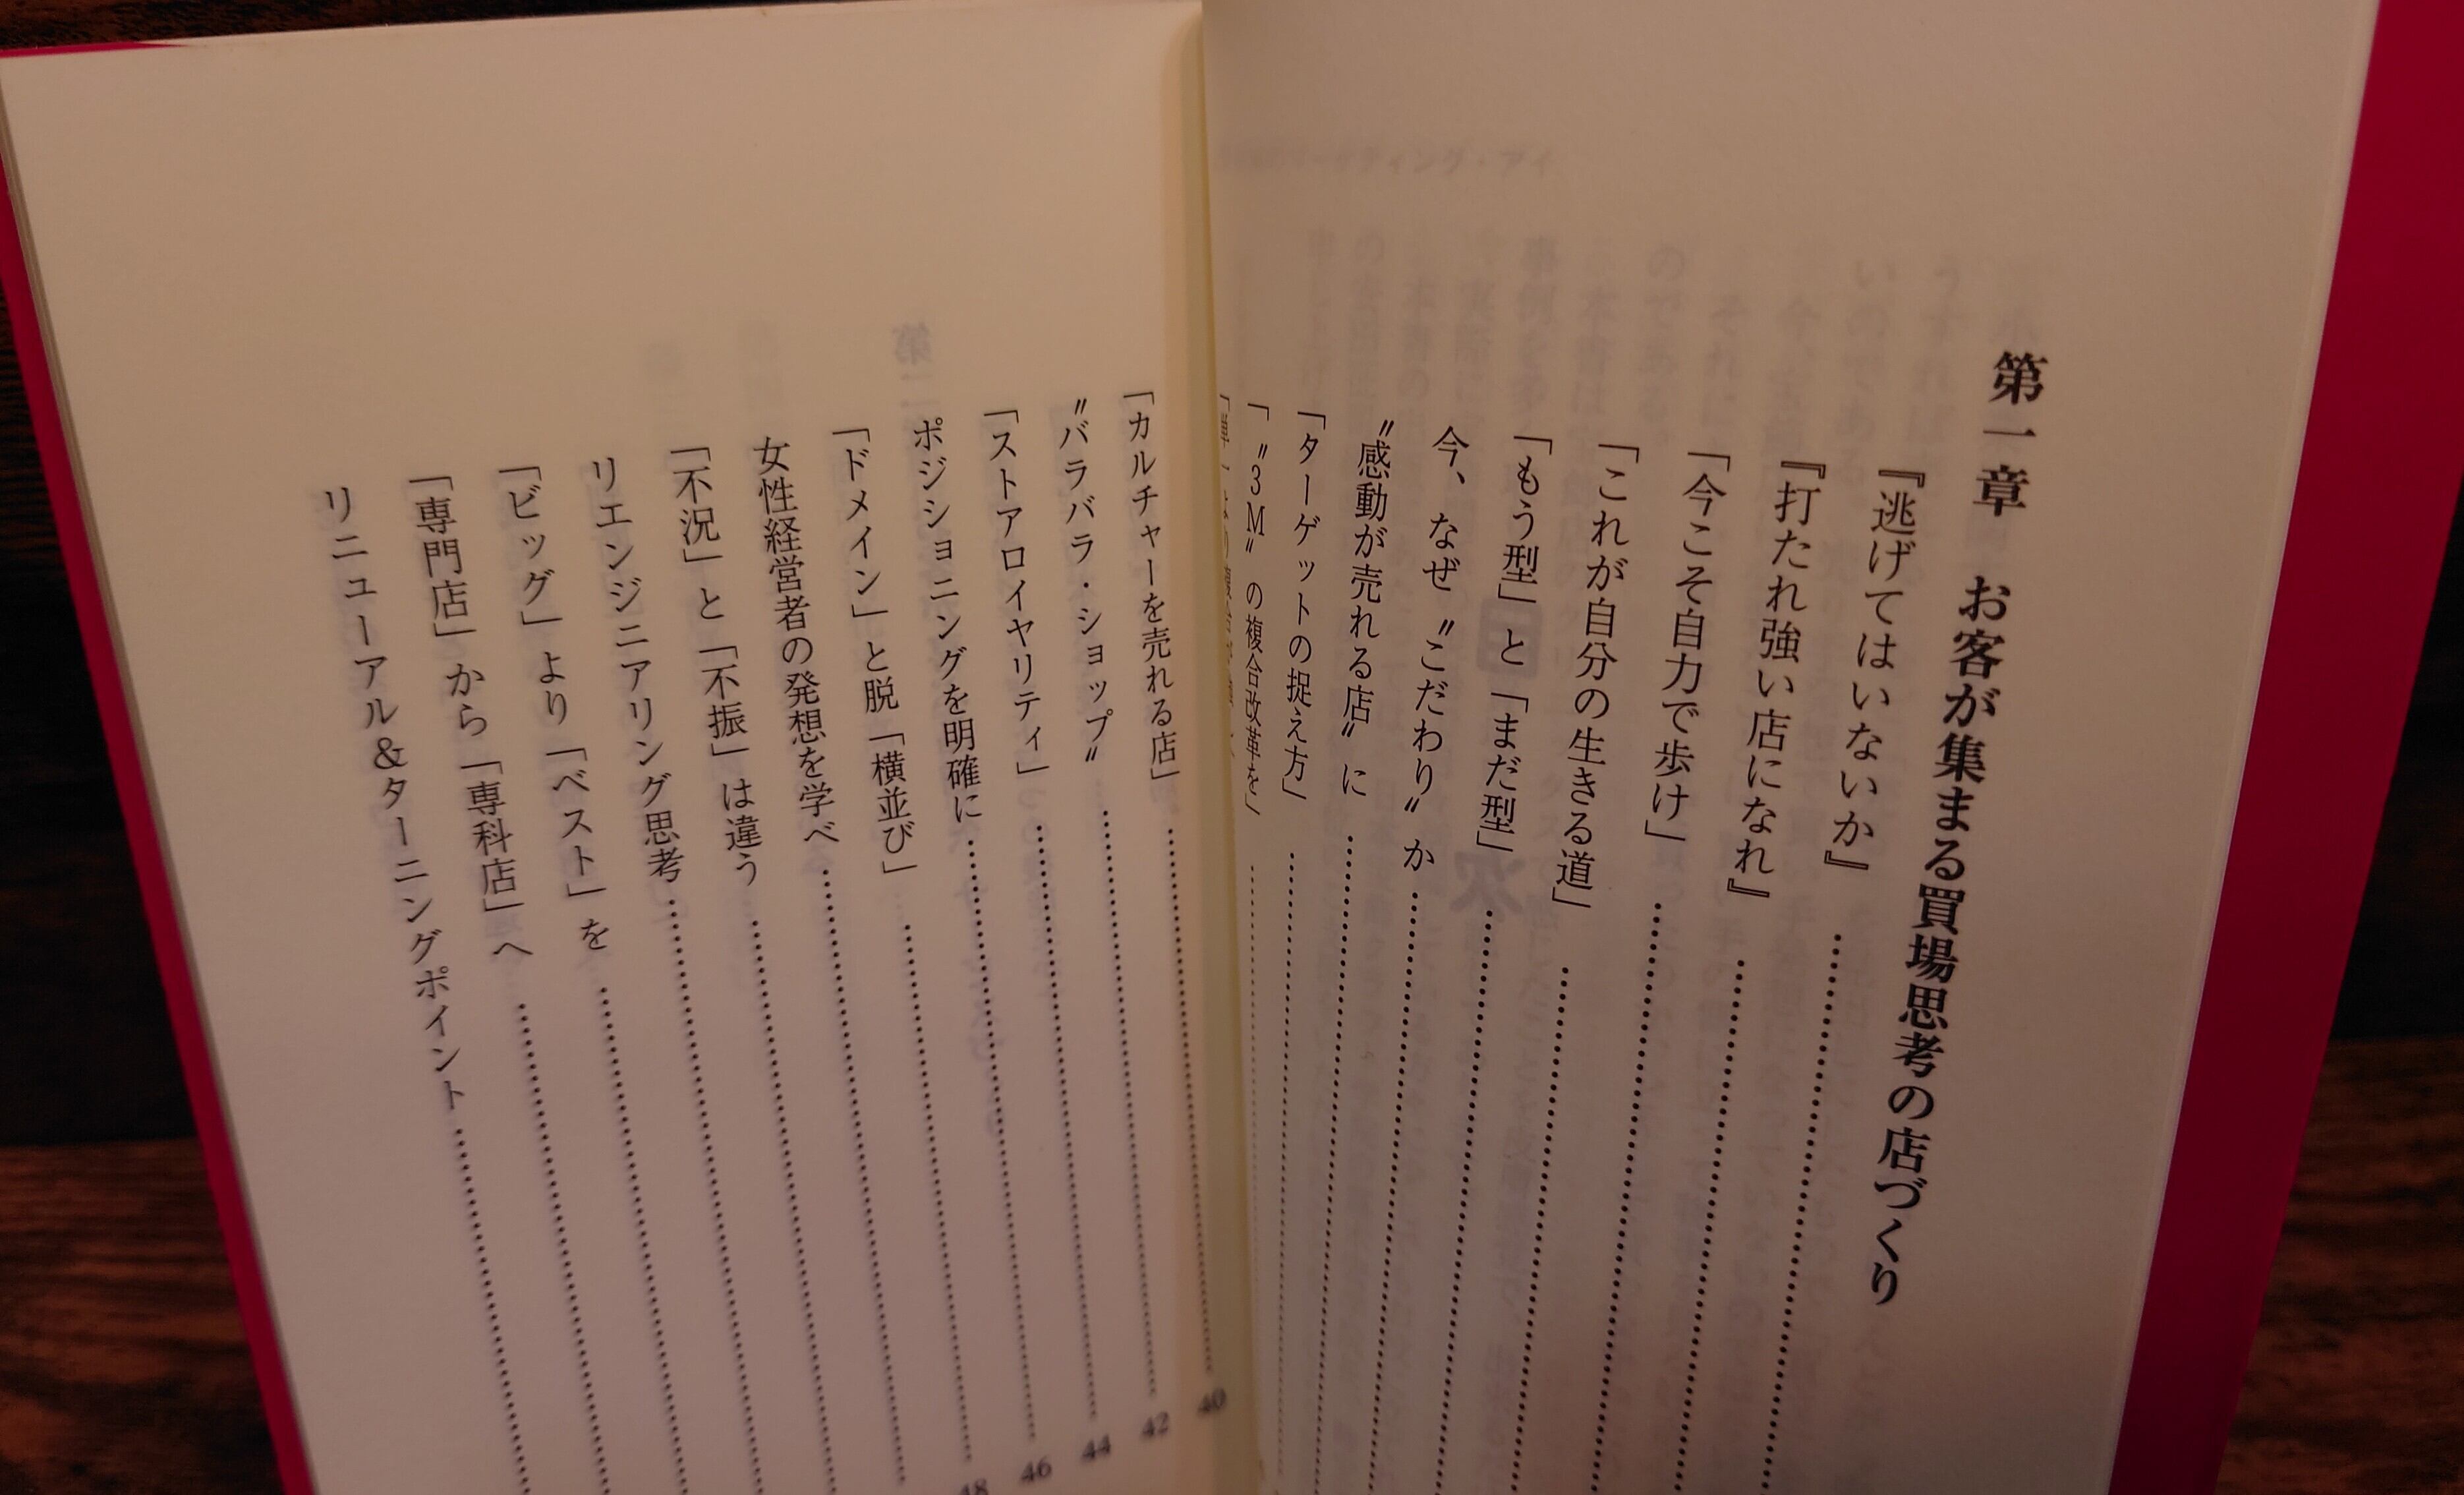 第一章　お客が集まる買場思考の店づくり
『逃げてはいないか』
『打たれ強い店になれ』
「今こそ自力で歩け」
「これが自分の生きる道」
「もう型」と「まだ型」
今、なぜ〝こだわり〟か
〝感動が売れる店〟に
「ターゲットの捉え方」
「〝3M〟の複合改革を」
「カルチャーを売れる店」 40
〝バラバラ・ショップ〟 42
「ストアロイヤリティ」 44
ポジショニングを明確に 46
「ドメイン」と脱「横並び」 48
女性経営者の発想を学べ
「不況」と「不振」は違う
リエンジニアリング思考
「ビッグ」より「ベスト」を
「専門店」から「専科店」へ
リニューアル&ターニングポイント